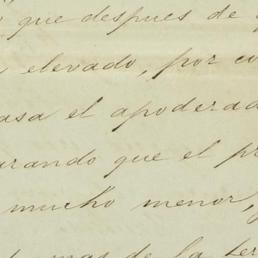 que despues de
elevado, por co
asa el apoderad
rando que el pr
mucho menor, y
mas de la ter